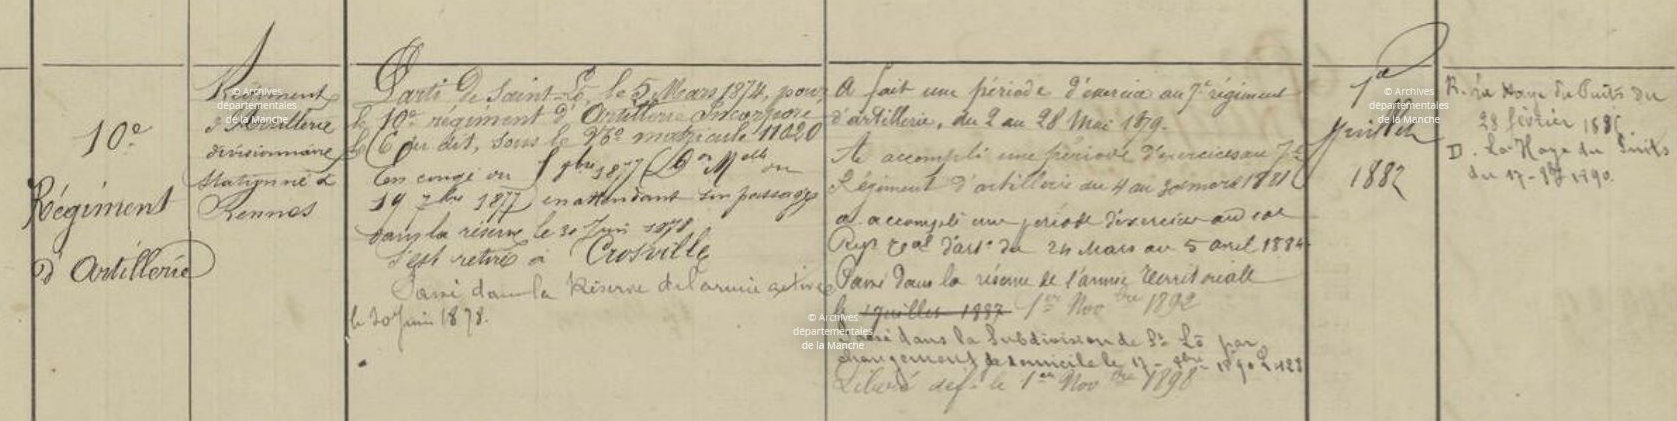 10e
Régiment
d'Artillerie
Régiment
d'Artillerie
divisionnaire
stationné à
Rennes
Parti de Saint-Lô, le 5 Mars 1874, pour
le 10e régiment d'Artillerie Incorporé
le du dit, sous le No matricule 11020
En congé du 1877 du
19 7bre 1877 en attendant son passage
dans la réserve le 30 Juin 1878
S'est retiré à Crosville
Passé dans la Réserve de l'armée active
le 30 Juin 1878.
A fait une période d'exercice au 7e régiment
d'artillerie, du 2 au 28 Mai 1879.
A accompli une période d'exercices au 7e
Régiment d'artillerie du 4 au 1881
a accompli une période d'exercice au
Régt d'art. du 24 Mars au 5 avril 1884
Passé dans la réserve de l'armée territoriale
le 1 juillet 1887 1er Novbre 1892
Passé dans la Subdivision de St Lô par
changement de domicile le 17 1890
Libéré déf. le 1er Novbre 1898
1er
Juillet
1882
R. La Haye du Puits du
28 février
D. La Haye du Puits
du 17 1890.
© Archives
départementales
de la Manche
© Archives
départementales
de la Manche
© Archives
départementales
de la Manche